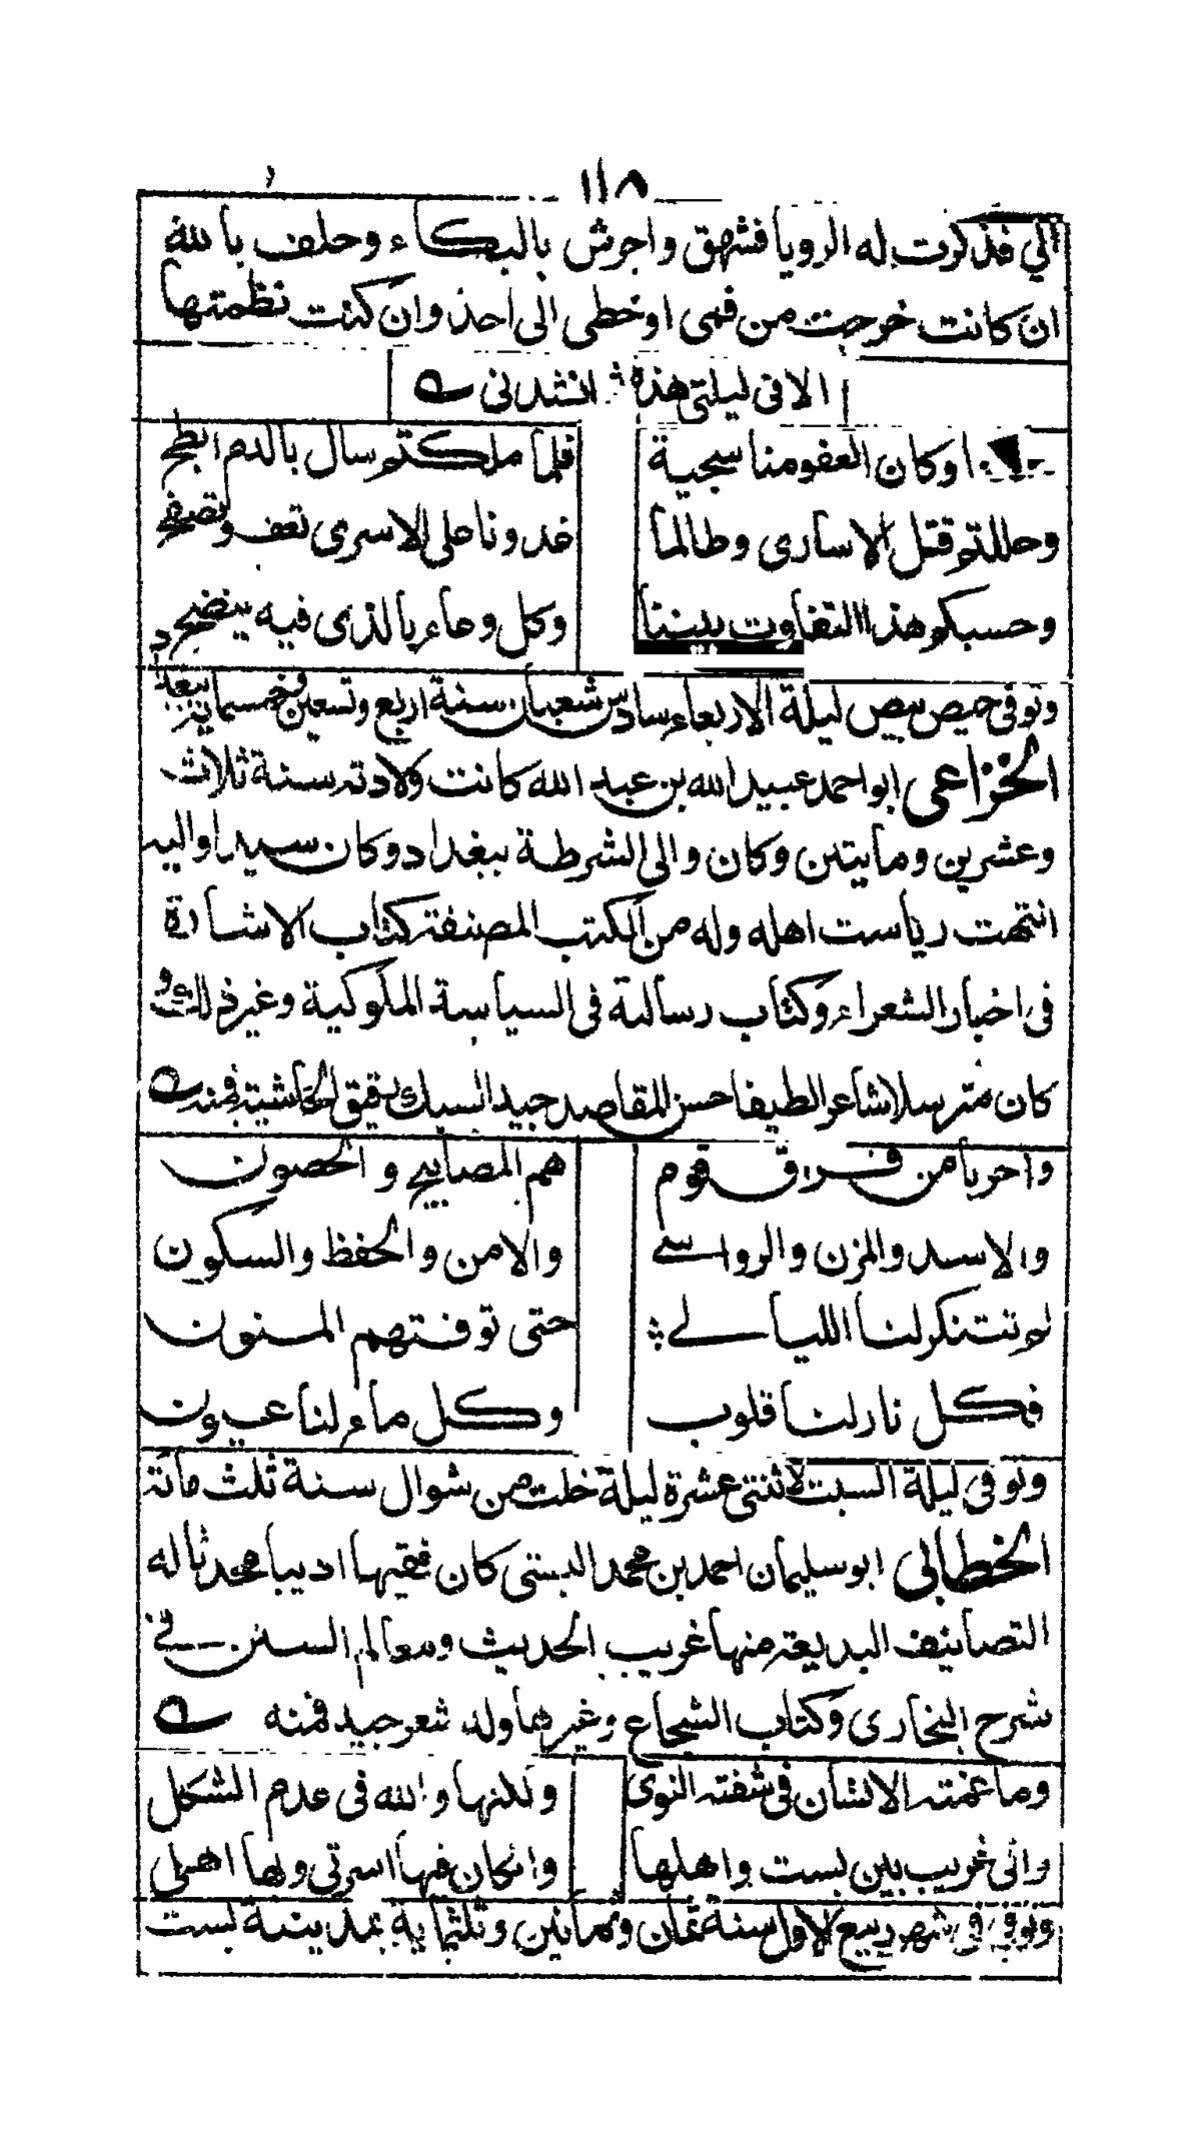 ١١٨
الي فذكرت له الرويا فشهق واجرش بالبكاء وحلف بالله
ان كانت خرجت من فمى اوخطى الى احد وان كنت نظمتها
الا فى ليلتى هذه ثم انشدنى
اوكان العفومنا سجية فلما ملكتم سال بالدم ابطح
وحللتم قتل الاسارى وطالما غدونا على الاسرى نعف ونصفح
وحسبكم هذا التفاوت بيننا وكل وعاء بالذى فيه ينضح
وتوفى حيص بيص ليلة الاربعاء سادس شعبان سنة اربع وتسعين وخمسماية ببغداد
الخزاعى ابو احمد عبيد الله بن عبد الله كانت ولادته سنة ثلاث
وعشرين ومايتين وكان والى الشرطة ببغداد وكان سيدا واليه
انتهت رياست اهله وله من الكتب المصنفة كتاب الاشارة
فى اخبار الشعراء وكتاب رسالة فى السياسة الملوكية وغير ذلك و
كان مترسلا شاعرا لطيفا حسن المقاصد جيد السبك رقيق الحاشية فمنه
واحربا من فراق قوم هم المصابيح والحصون
والاسد والمزن والرواسے والامن والحفظ والسكون
لم تتنكر لنا الليالے حتى توفتهم المنون
فكل نار لنا قلوب وكل ماء لنا عيون
وتوفى ليلة السبت لاثنتى عشرة ليلة خلت من شوال سنة ثلث مائة
الخطابى ابو سليمان احمد بن محمد البستى كان فقيها اديبا محدثا له
التصانيف البديعة منها غريب الحديث ومعالم السنن فے
شرح البخارى وكتاب الشجاع وغيرهما وله شعر جيد فمنه
وما غمته الانسان فى شقته النوى ولكنها والله فى عدم الشكل
وانى غريب بين بست واهلها وانكان فيها اسرتى وبها اهلى
وتوفى فى شهر ربيع الاول سنة ثمان وثمانين وثلثماية بمدينة بست